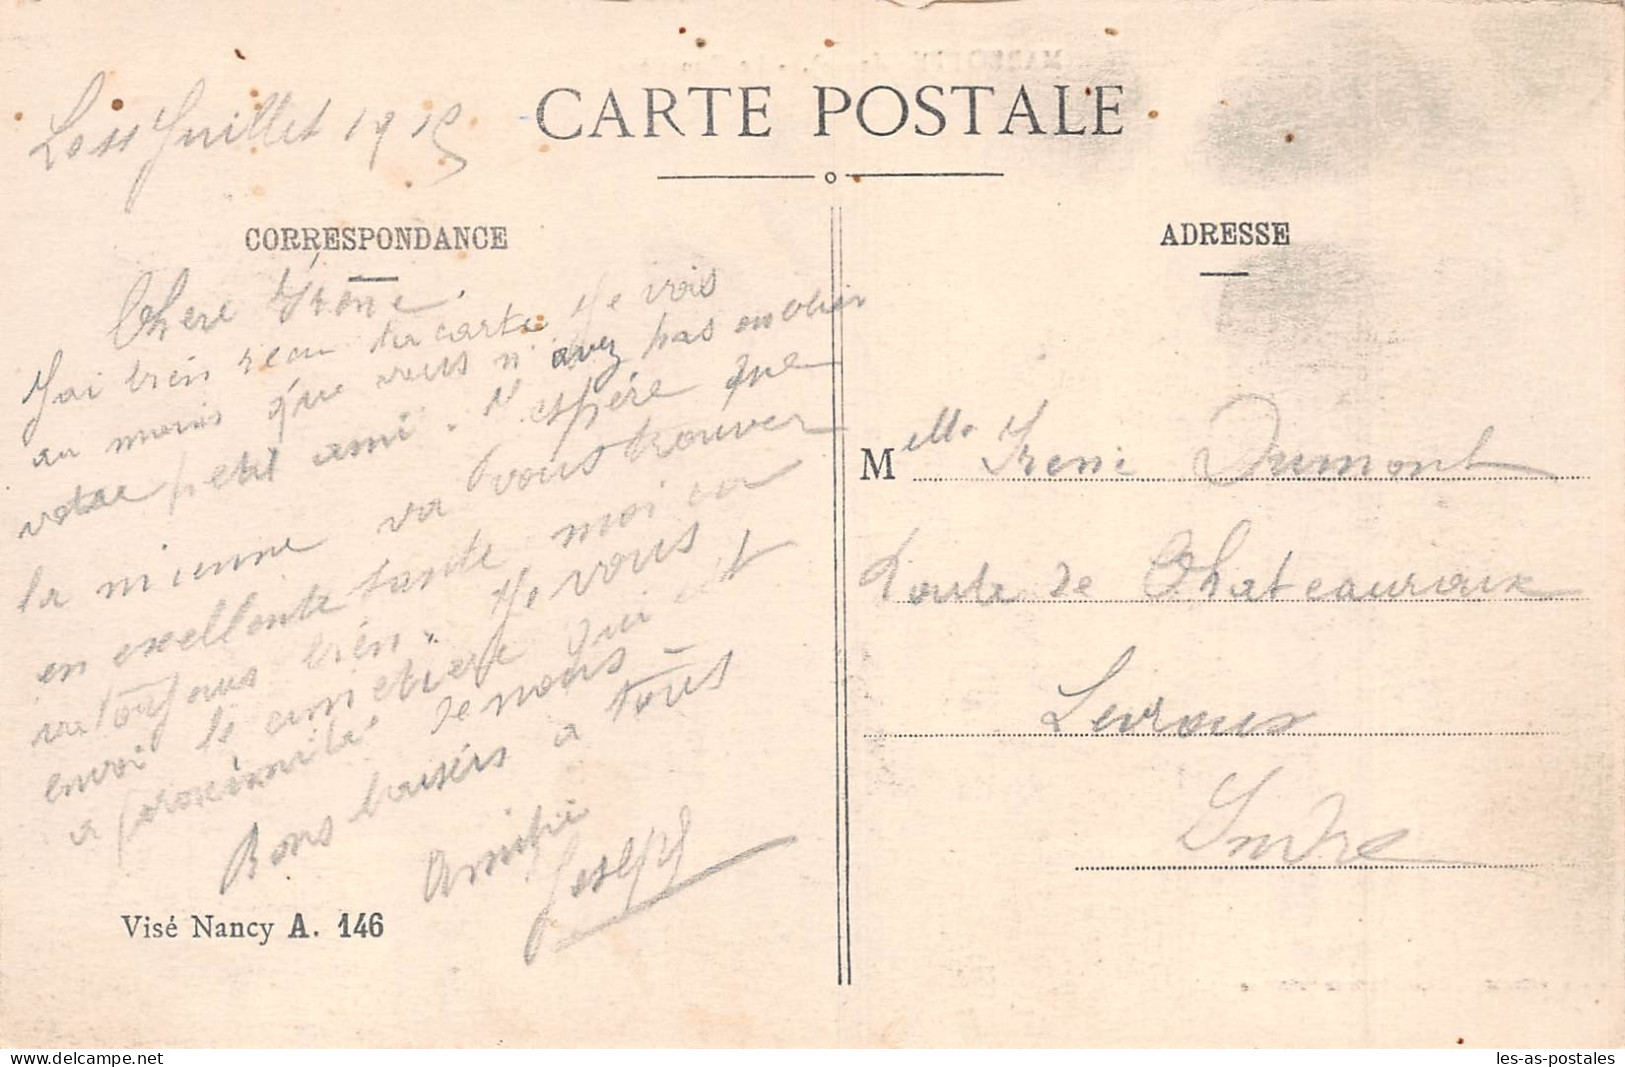 CARTE POSTALE
Le 11 Juillet 1915
CORRESPONDANCE
ADRESSE
Chère Irène
J'ai bien recu ta carte Je vois
au moins que vous n'avez pas oublier
votre petit ami. J'espère que
la mienne va vous trouver
en excellente santé moi ca
va toujours bien. Je vous
envoi le cimetiere qui est
a proximité de nous
Bons baisers a tous
Amitié
Joseph
Visé Nancy A. 146
Melle Irene Dumont
Route de Chateauroux
Levroux
Indre
les-as-postales
www.delcampe.net